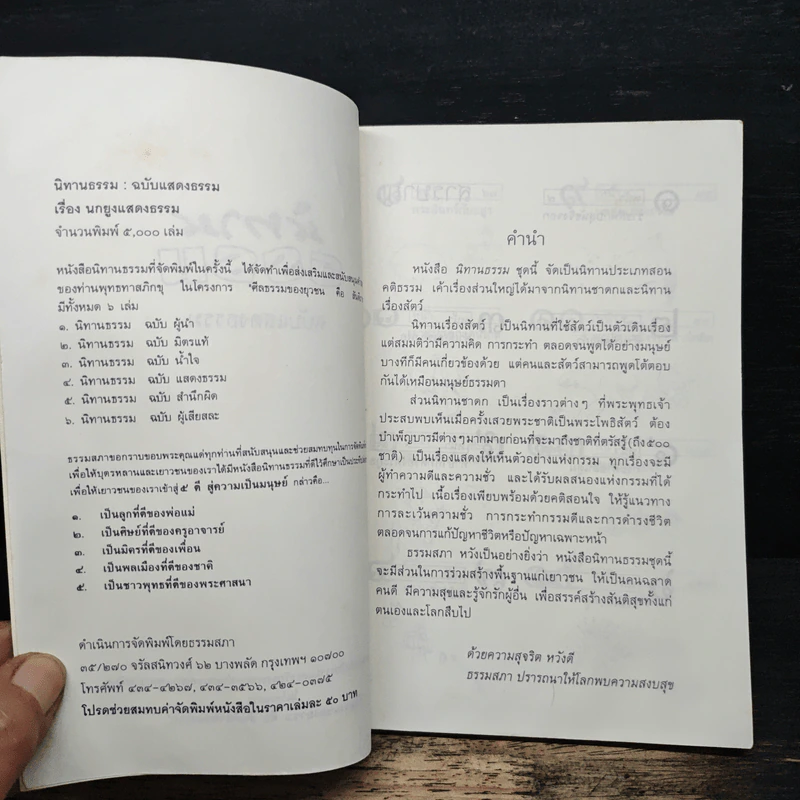 นิทานธรรม : ฉบับแสดงธรรม
เรื่อง นกยูงแสดงธรรม
จำนวนพิมพ์ ๕,๐๐๐ เล่ม
หนังสือนิทานธรรมที่จัดพิมพ์ในครั้งนี้ ได้จัดทำเพื่อส่งเสริมและสนับสนุน
ของท่านพุทธทาสภิกขุ ในโครงการ "ศีลธรรมของยุวชน คือ
มีทั้งหมด ๖ เล่ม
๑. นิทานธรรม ฉบับ ผู้นำ
๒. นิทานธรรม ฉบับ มิตรแท้
๓. นิทานธรรม ฉบับ น้ำใจ
๔. นิทานธรรม ฉบับ แสดงธรรม
๕. นิทานธรรม ฉบับ สำนึกผิด
๖. นิทานธรรม ฉบับ ผู้เสียสละ
ธรรมสภาขอกราบขอบพระคุณแด่ทุกท่านที่สนับสนุนและช่วยสมทบทุนในการจัดพิมพ์
เพื่อให้บุตรหลานและเยาวชนของเราได้มีหนังสือนิทานธรรมที่ดีไว้ศึกษาเป็น
เพื่อให้เยาวชนของเราเข้าสู่ ๕ ดี สู่ความเป็นมนุษย์ กล่าวคือ...
๑. เป็นลูกที่ดีของพ่อแม่
๒. เป็นศิษย์ที่ดีของครูอาจารย์
๓. เป็นมิตรที่ดีของเพื่อน
๔. เป็นพลเมืองที่ดีของชาติ
๕. เป็นชาวพุทธที่ดีของพระศาสนา
ดำเนินการจัดพิมพ์โดยธรรมสภา
๓๕/๒๗๐ จรัลสนิทวงศ์ ๖๒ บางพลัด กรุงเทพฯ ๑๐๗๐๐
โทรศัพท์ ๔๓๔-๔๒๖๗, ๔๓๔-๓๕๖๖, ๔๒๔-๐๓๗๕
โปรดช่วยสมทบค่าจัดพิมพ์หนังสือในราคาเล่มละ ๕๐ บาท
คำนำ
หนังสือ นิทานธรรม ชุดนี้ จัดเป็นนิทานประเภทสอน
คติธรรม เค้าเรื่องส่วนใหญ่ได้มาจากนิทานชาดกและนิทาน
เรื่องสัตว์
นิทานเรื่องสัตว์ เป็นนิทานที่ใช้สัตว์เป็นตัวเดินเรื่อง
แต่สมมติว่ามีความคิด การกระทำ ตลอดจนพูดได้อย่างมนุษย์
บางทีก็มีคนเกี่ยวข้องด้วย แต่คนและสัตว์สามารถพูดโต้ตอบ
กันได้เหมือนมนุษย์ธรรมดา
ส่วนนิทานชาดก เป็นเรื่องราวต่างๆ ที่พระพุทธเจ้า
ประสบพบเห็นเมื่อครั้งเสวยพระชาติเป็นพระโพธิสัตว์ ต้อง
บำเพ็ญบารมีต่างๆ มากมายก่อนที่จะมาถึงชาติที่ตรัสรู้ (ถึง ๕๐๐
ชาติ) เป็นเรื่องแสดงให้เห็นตัวอย่างแห่งกรรม ทุกเรื่องจะมี
ผู้ทำความดีและความชั่ว และได้รับผลสนองแห่งกรรมที่ได้
กระทำไป เนื้อเรื่องเพียบพร้อมด้วยคติสอนใจ ให้รู้แนวทาง
การละเว้นความชั่ว การกระทำกรรมดีและการดำรงชีวิต
ตลอดจนการแก้ปัญหาชีวิตหรือปัญหาเฉพาะหน้า
ธรรมสภา หวังเป็นอย่างยิ่งว่า หนังสือนิทานธรรมชุดนี้
จะมีส่วนในการร่วมสร้างพื้นฐานแก่เยาวชน ให้เป็นคนฉลาด
คนดี มีความสุขและรู้จักรักผู้อื่น เพื่อสรรค์สร้างสันติสุขทั้งแก่
ตนเองและโลกสืบไป
ด้วยความสุจริต หวังดี
ธรรมสภา ปรารถนาให้โลกพบความสงบสุข